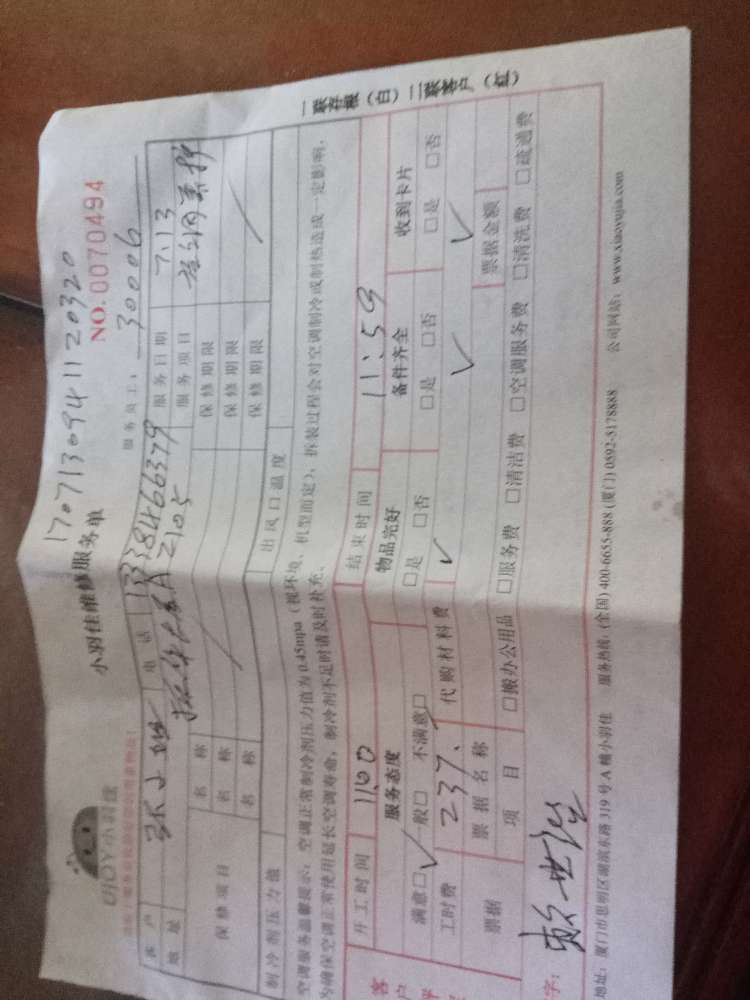 17071309411120320
小羽佳维修服务单
NO.0070494
UJOY小羽佳
服务员工：30006
客 户
电 话 1338466379
服务日期 7.13
地 址
2105
服务项目
保修项目
名 称
保修期限
名 称
保修期限
名 称
保修期限
制冷剂压力值
出风口温度
空调服务温馨提示：空调正常制冷剂压力值为0.45mpa（视环境、机型而定），拆装过程会对空调制冷或制热造成一定影响，
为确保空调正常使用延长空调寿命，制冷剂不足时请及时补充。
开工时间 11:00 结束时间 11:59
服务态度 物品完好 备件齐全 收到卡片
满意□✓ 一般□ 不满意□ □是 □否 □是 □否 □是 □否
工时费 237. 代购材料费 ✓ ✓ ✓
票据
票据名称
票据金额
项 目 □搬办公用品 □服务费 □清洁费 □空调服务费 □清洗费 □疏通费
字：
地址：厦门市思明区湖滨东路319号A幢小羽佳 服务热线：(全国) 400-6655-888 (厦门) 0592-5178888 公司网站：www.xiaoyujia.com
一联存根（白）二联客户（红）